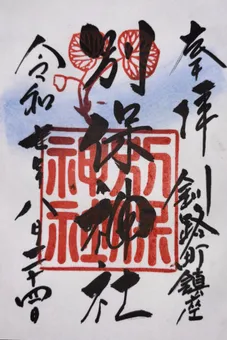 奉拝
釧路町鎮座
別保神社
別保神社
令和七年八月二十四日